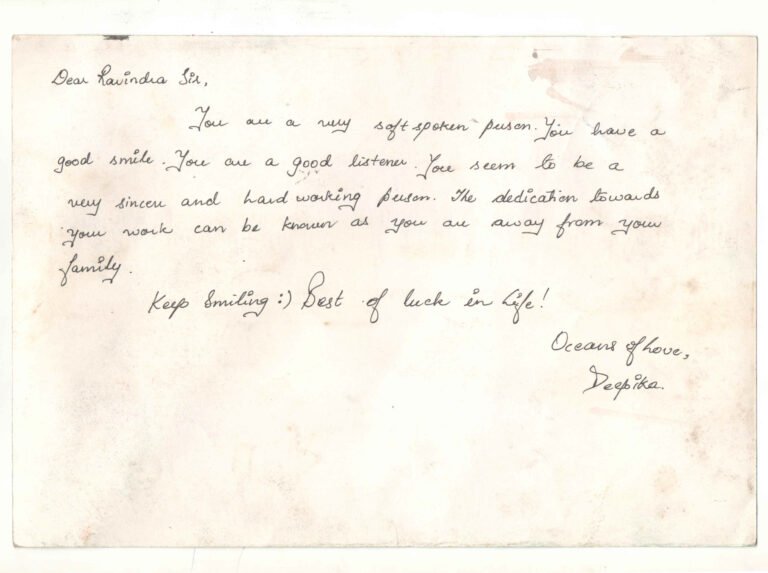 Dear Ravindra Sir,
You are a very soft spoken person. You have a
good smile. You are a good listener. You seem to be a
very sincere and hard working person. The dedication towards
your work can be known as you are away from your
family.
Keep Smiling :) Best of luck in Life!
Oceans of Love,
Deepika.